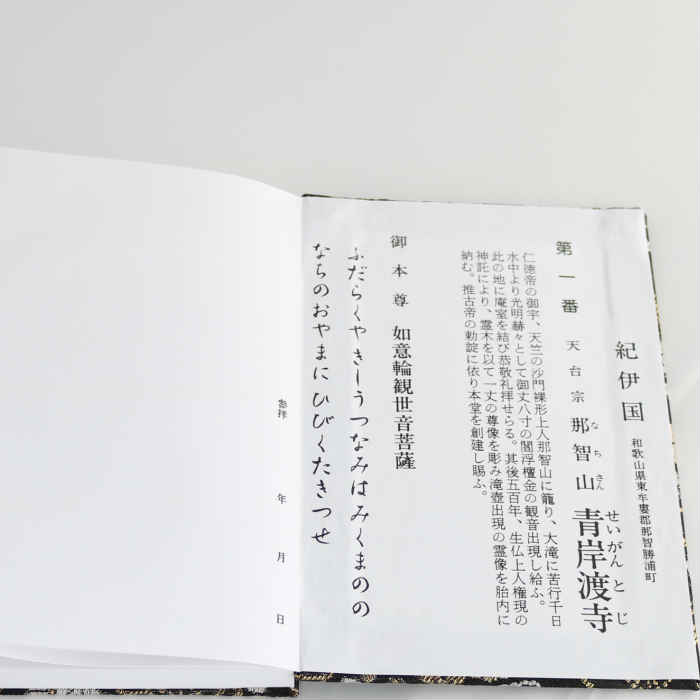 紀伊国 和歌山県東牟婁郡那智勝浦町
第一番 天台宗 那智山 青岸渡寺
なちさん せいがんとじ
仁徳帝の御宇、天竺の沙門裸形上人那智山に籠り、大滝に苦行千日
水中より光明赫々として御丈八寸の閻浮檀金の観音出現し給ふ。
此の地に庵室を結び恭敬礼拝せらる。其後五百年、生仏上人権現の
神託により、霊木を以て一丈の尊像を彫み滝壺出現の霊像を胎内に
納む。推古帝の勅錠に依り本堂を創建し賜ふ。
御本尊 如意輪観世音菩薩
ふだらくやきしうつなみはみくまのの
なちのおやまにひびくたきつせ
参拝 年 月 日